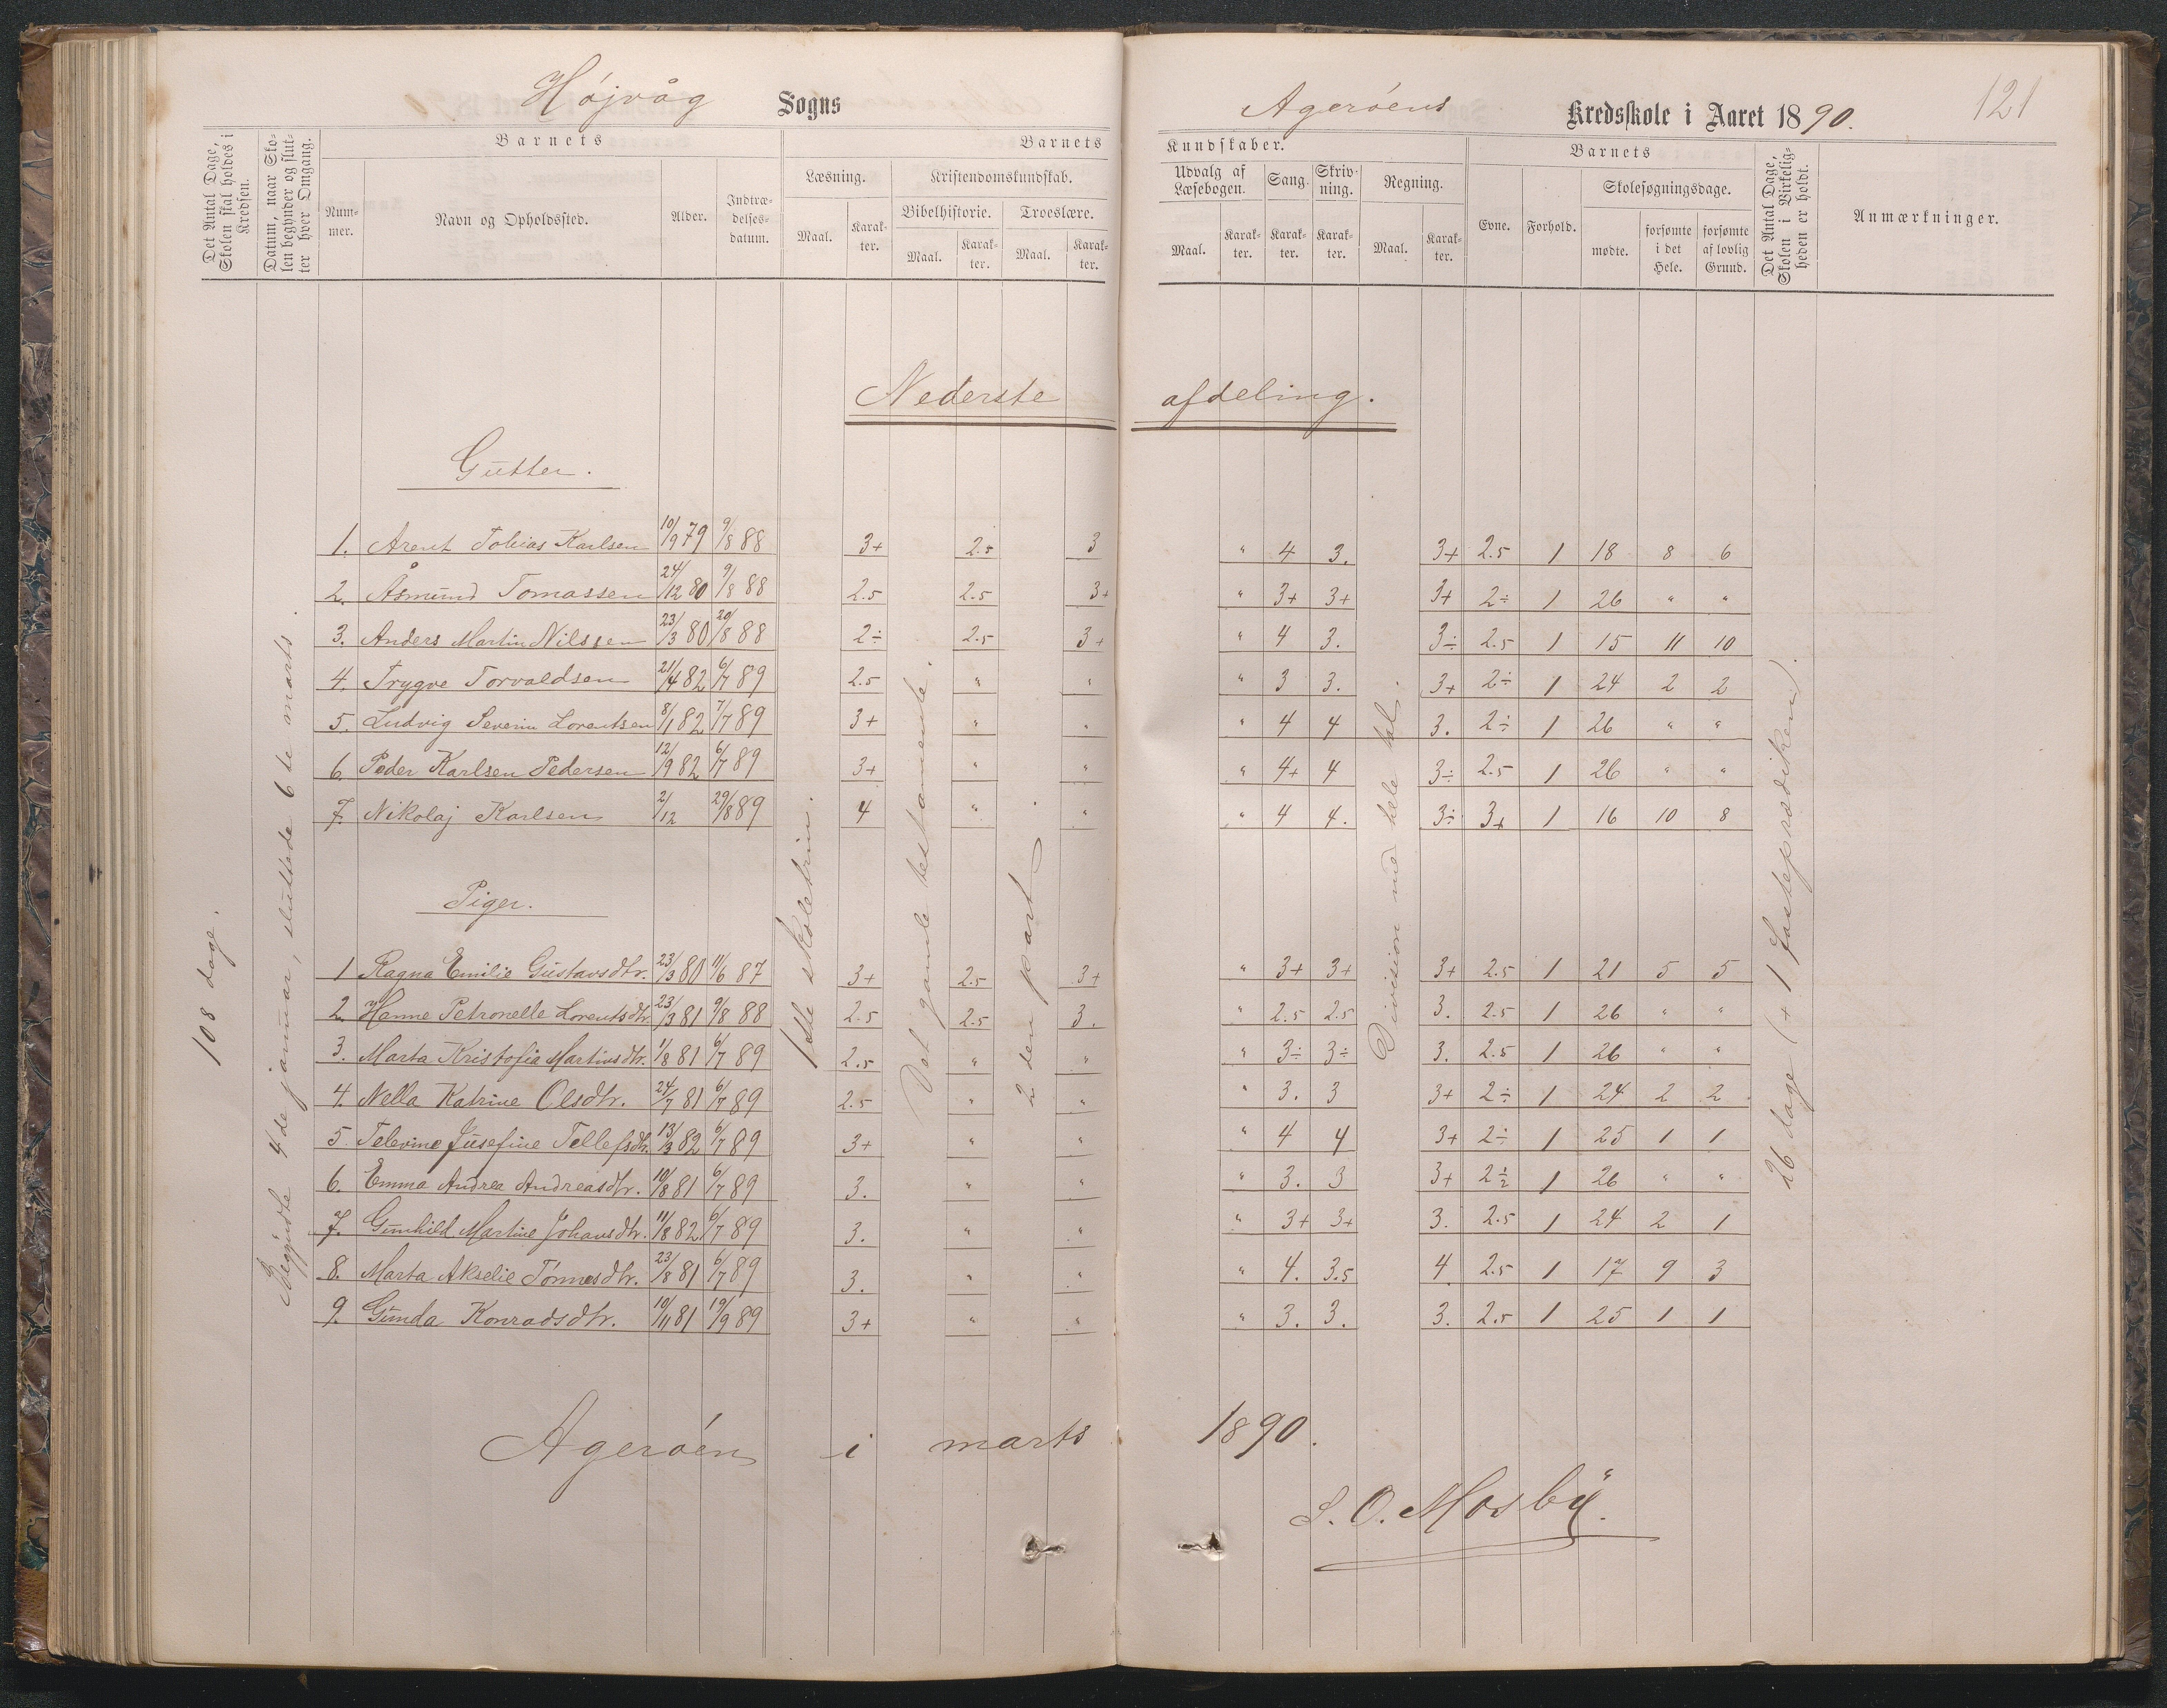 Højvåg Sogns Agerøens Kredsskole i Aaret 1890. 121
Det Antal Dage, Skolen skal holdes i Kredsen.
Datum, naar Skolen begynder og slutter hver Omgang.
Barnets
Nummer.
Navn og Opholdssted.
Alder.
Indtrædelsesdatum.
Barnets Kundskaber.
Læsning.
Maal.
Karakter.
Kristendomskundskab.
Bibelhistorie.
Maal.
Karakter.
Troeslære.
Maal.
Karakter.
Udvalg af Læsebogen.
Maal.
Karakter.
Sang.
Karakter.
Skrivning.
Karakter.
Regning.
Maal.
Karakter.
Barnets
Evne.
Forhold.
Skolesøgningsdage.
mødte.
forsømte i det Hele.
forsømte af lovlig Grund.
Det Antal Dage, Skolen i Virkeligheden er holdt.
Anmærkninger.
Nederste afdeling.
108 dage.
Begyndte 4de januar, sluttede 6te marts.
1ste skoletrin.
Det gamle testamente.
2den part.
Division med hele tal.
26 dage (+ 1 fasteprædiken).
Gutter.
1. Arent Tobias Karlsen 10/9 79 9/8 88 3+ 2.5 3 " 4 3. 3+ 2.5 1 18 8 6
2. Åsmund Tomassen 24/12 80 9/8 88 2.5 2.5 3+ " 3+ 3+ 3+ 2÷ 1 26 " "
3. Anders Martin Nilssen 23/3 80 20/8 88 2÷ 2.5 3+ " 4 3. 3÷ 2.5 1 15 11 10
4. Trygve Torvaldsen 21/4 82 6/7 89 2.5 " " " 3 3. 3+ 2÷ 1 24 2 2
5. Ludvig Severin Lorentsen 8/1 82 7/7 89 3+ " " " 4 4 3. 2÷ 1 26 " "
6. Peder Karlsen Pedersen 12/9 82 6/7 89 3+ " " " 4+ 4 3÷ 2.5 1 26 " "
7. Nikolaj Karlsen 2/12 29/8 89 4 " " " 4 4. 3÷ 3+ 1 16 10 8
Piger.
1 Ragna Emilie Gustavsdtr. 23/3 80 11/6 87 3+ 2.5 3+ " 3+ 3+ 3+ 2.5 1 21 5 5
2. Hanne Petronelle Lorentsdtr. 23/3 81 9/8 88 2.5 2.5 3. " 2.5 2.5 3. 2.5 1 26 " "
3. Marta Kristofia Martinsdtr. 1/8 81 6/7 89 2.5 " " " 3÷ 3÷ 3. 2.5 1 26 " "
4. Nella Katrine Olsdtr. 24/7 81 6/7 89 2.5 " " " 3. 3 3+ 2÷ 1 24 2 2
5. Televine Jusefine Tellefsdtr. 13/3 82 6/7 89 3+ " " " 4 4 3+ 2÷ 1 25 1 1
6. Emma Andrea Andreasdtr. 10/8 81 6/7 89 3. " " " 3. 3 3+ 2÷ 1 26 " "
7. Gunhild Martine Johansdtr. 11/8 82 6/7 89 3. " " " 3+ 3+ 3. 2.5 1 24 2 1
8. Marta Akselie Tønnesdtr. 23/8 81 6/7 89 3. " " " 4. 3.5 4 2.5 1 17 9 3
9. Gunda Konradsdtr. 10/11 81 19/9 89 3+ " " " 3. 3. 3. 2.5 1 25 1 1
Agerøen i marts 1890.
S. O. Mosby.